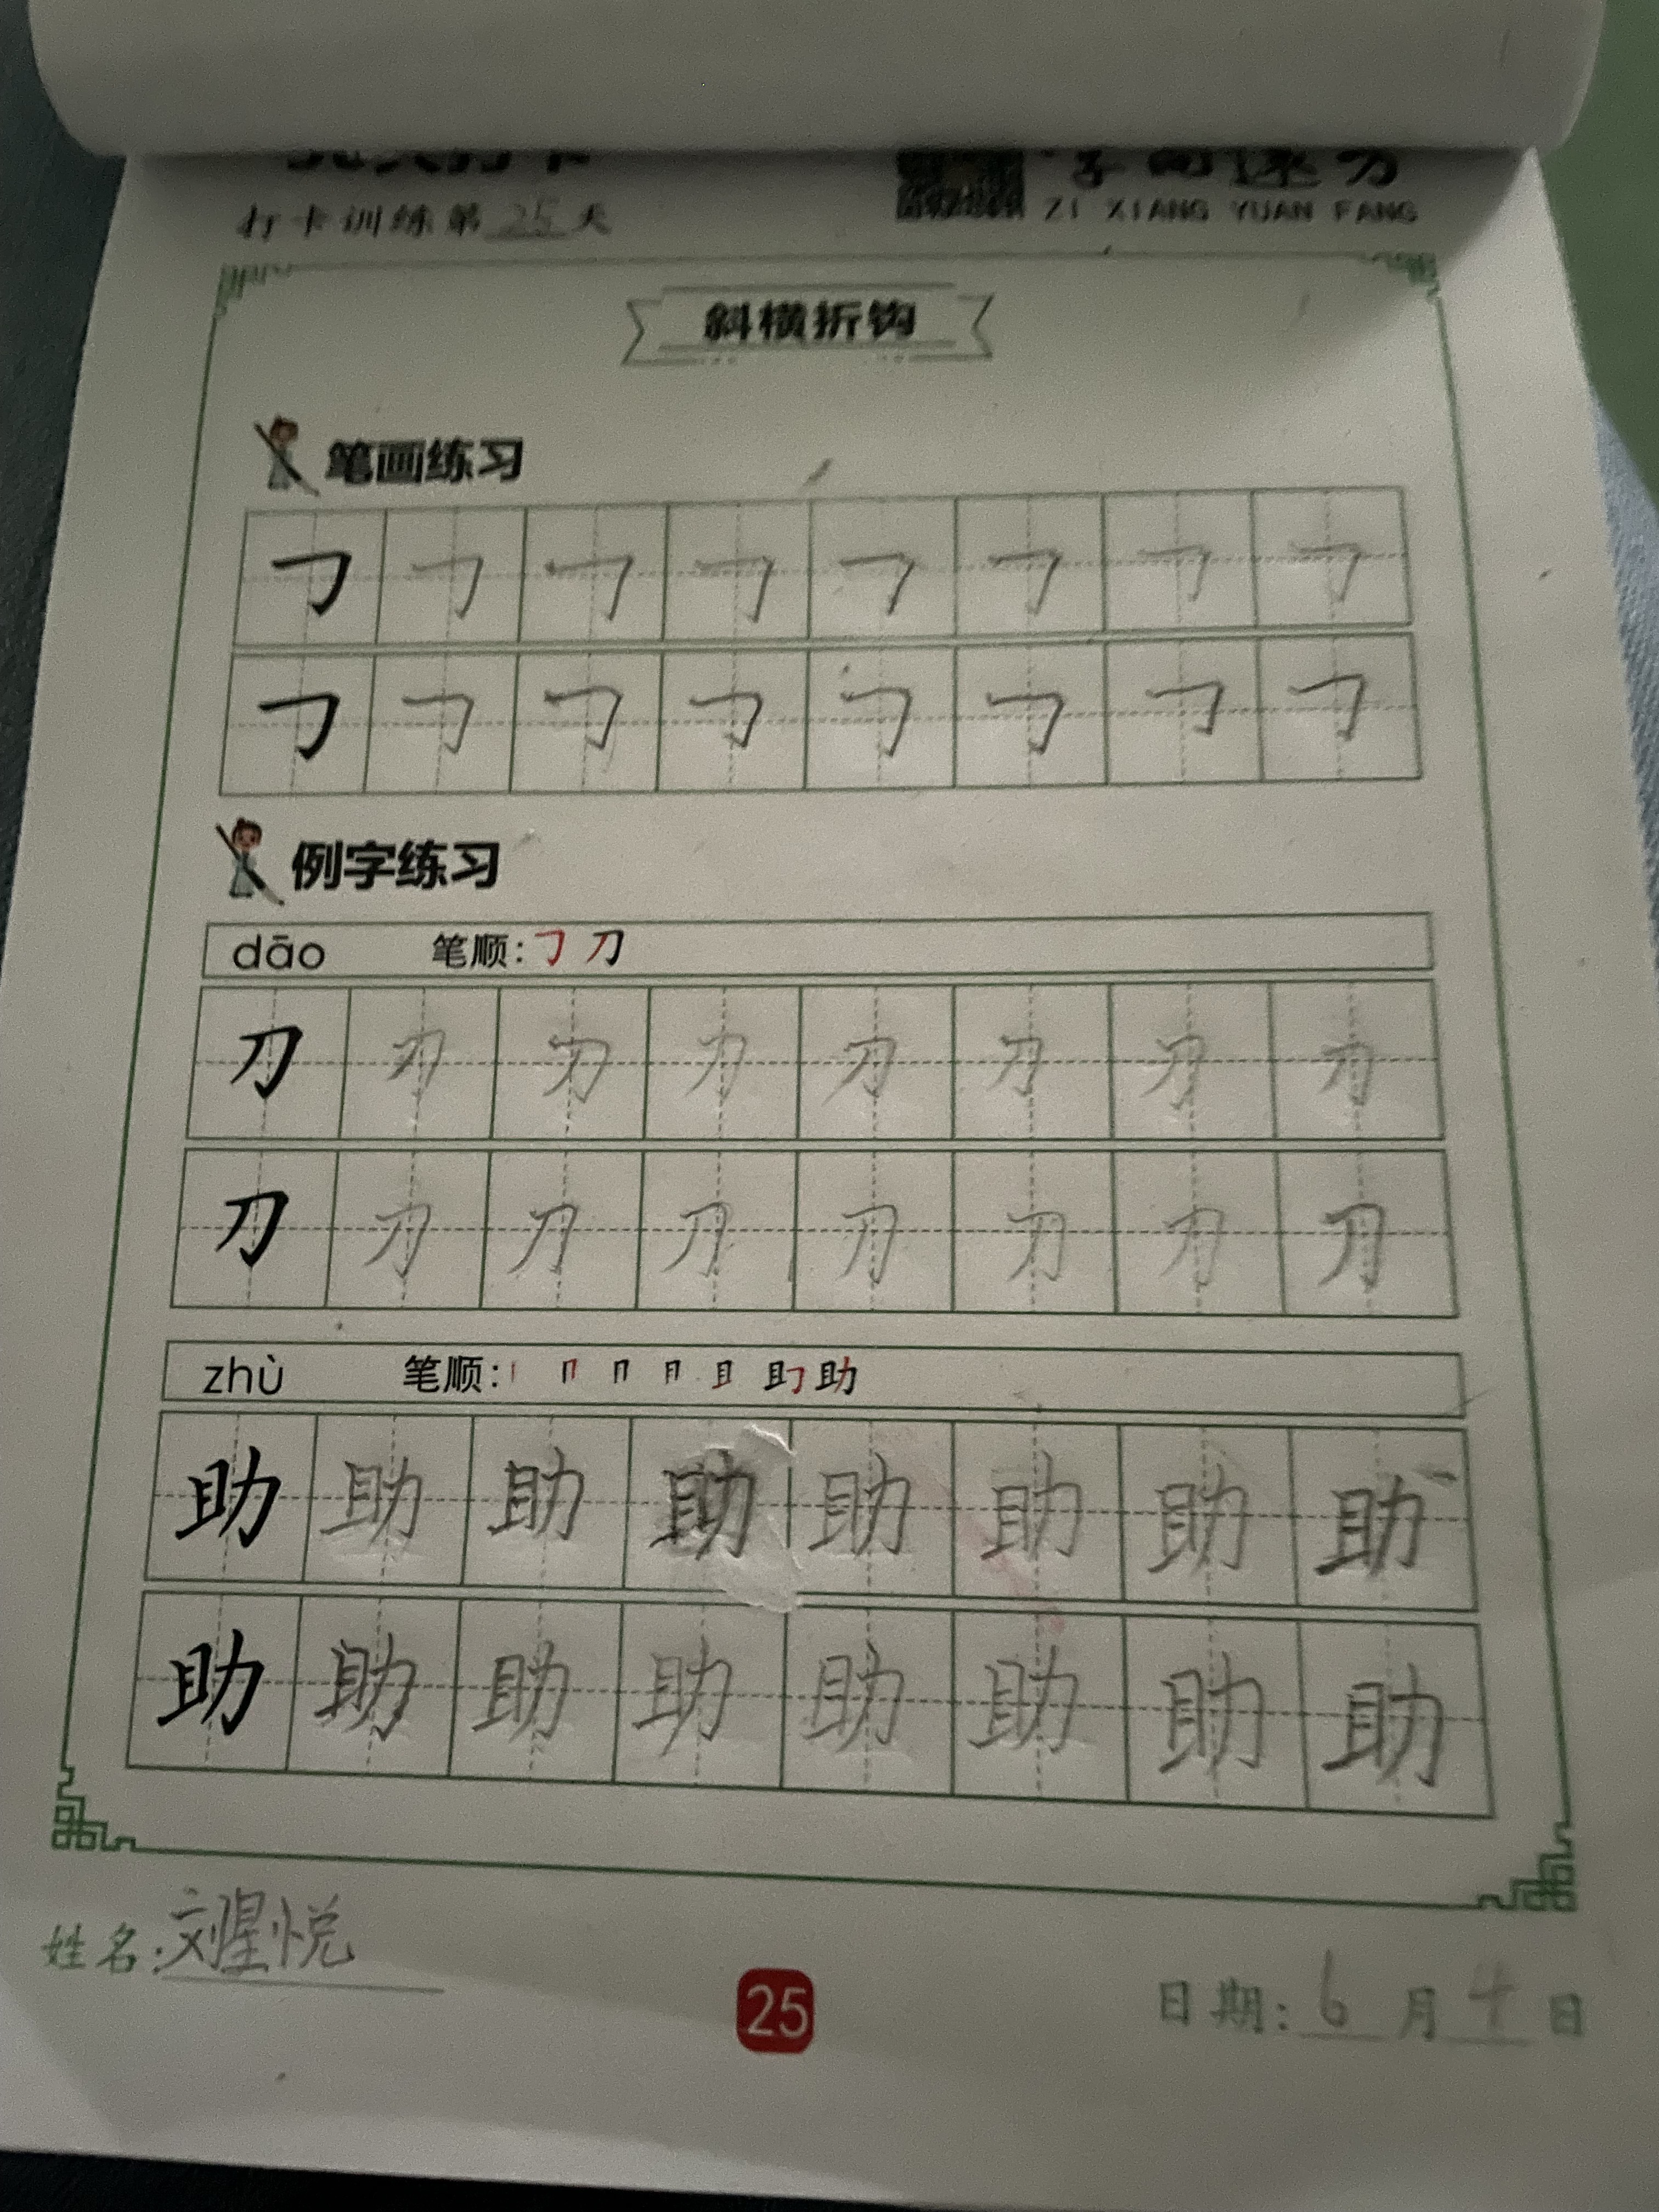 打卡训练第25天
ZI XIANG YUAN FANG
斜横折钩
笔画练习
㇆ ㇆ ㇆ ㇆ ㇆ ㇆ ㇆ ㇆
㇆ ㇆ ㇆ ㇆ ㇆ ㇆ ㇆ ㇆
例字练习
dāo 笔顺: ㇆ 刀
刀 刀 刀 刀 刀 刀 刀 刀
刀 刀 刀 刀 刀 刀 刀 刀
zhù 笔顺: 丨 冂 冂 月 且 助 助
助 助 助 助 助 助 助 助
助 助 助 助 助 助 助 助
姓名:刘星悦
25
日期: 6 月 4 日